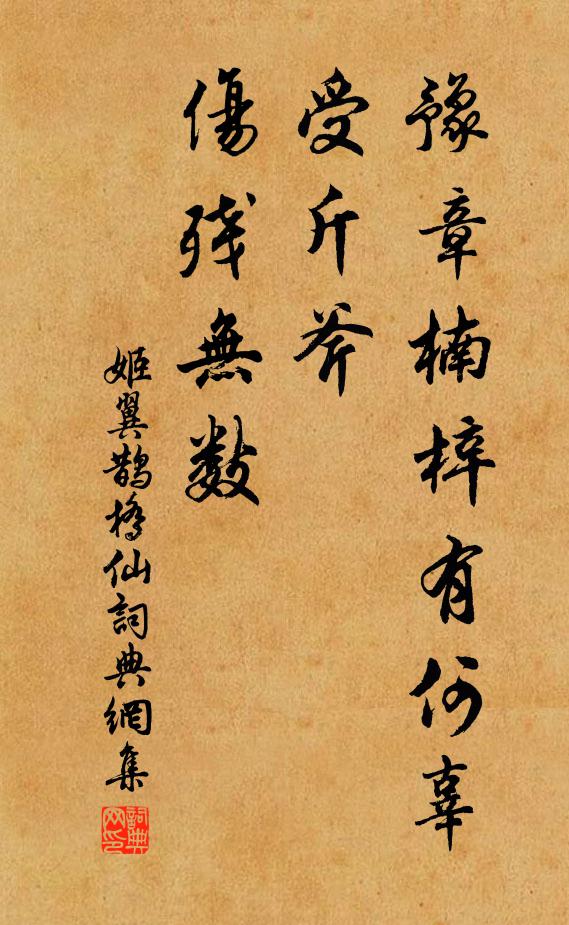 豫章楠梓有何辜
受斤斧
傷殘無數
姬翼鵲橋仙詞典網集
詞典网印